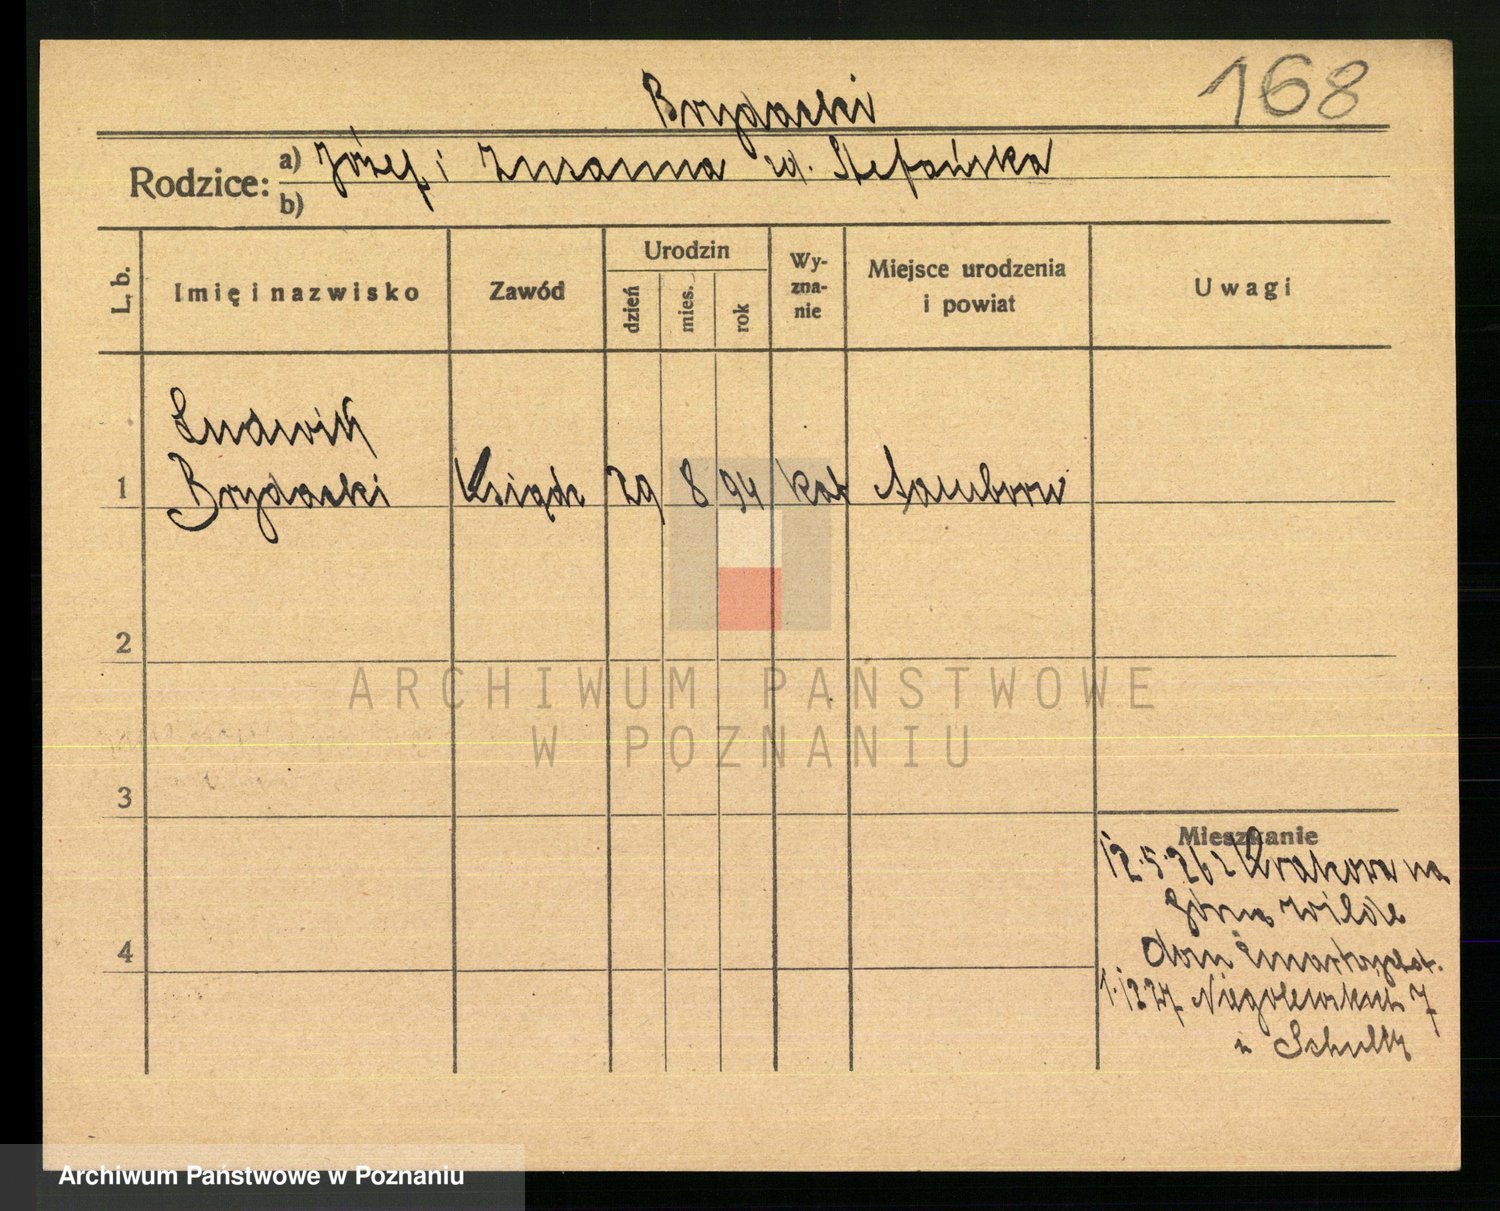 168
Brydacki
Rodzice: a) Józef i Zuzanna zd. Stefańska
b)
L. b. Imię i nazwisko Zawód Urodzin dzień mies. rok Wyznanie Miejsce urodzenia i powiat Uwagi
Ludwik
1 Brydacki Ksiądz 29 8 94 kat Sambor
2
ARCHIWUM PAŃSTWOWE
W POZNANIU
3
Mieszkanie
12.5.26 z Krakowa na
Górna Wilda
dom Zmartwychst.
1.12 27 Niegolewskich 7
u Schultz
4
Archiwum Państwowe w Poznaniu